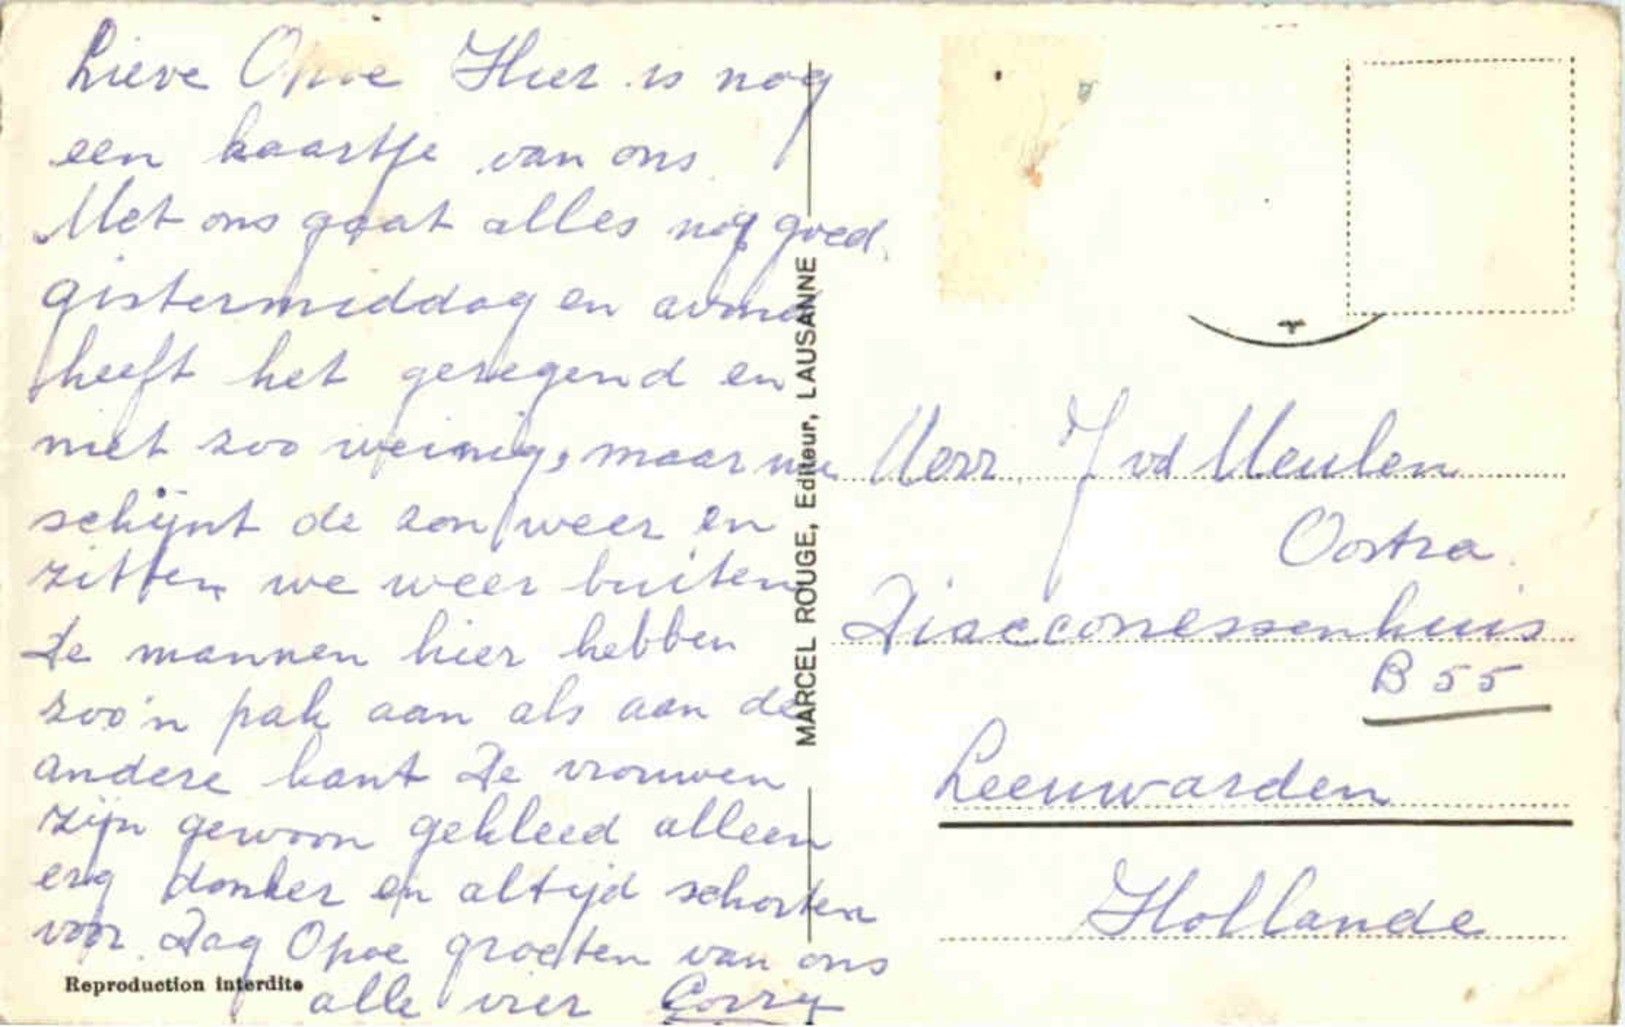 Lieve Opoe Hier is nog
een kaartje van ons.
Met ons gaat alles nog goed,
gistermiddag en avond
heeft het geregend en
niet zoo weinig, maar nu
schijnt de zon weer en
zitten we weer buiten
De mannen hier hebben
zoo'n pak aan als aan de
andere kant De vrouwen
zijn gewoon gekleed alleen
erg donker en altijd schorten
voor. Dag Opoe groeten van ons
alle vier Corry
Reproduction interdite
MARCEL ROUGE, Editeur, LAUSANNE
J vd Meulen
Oostra
Diacconessenhuis
B 55
Leeuwarden
Hollande